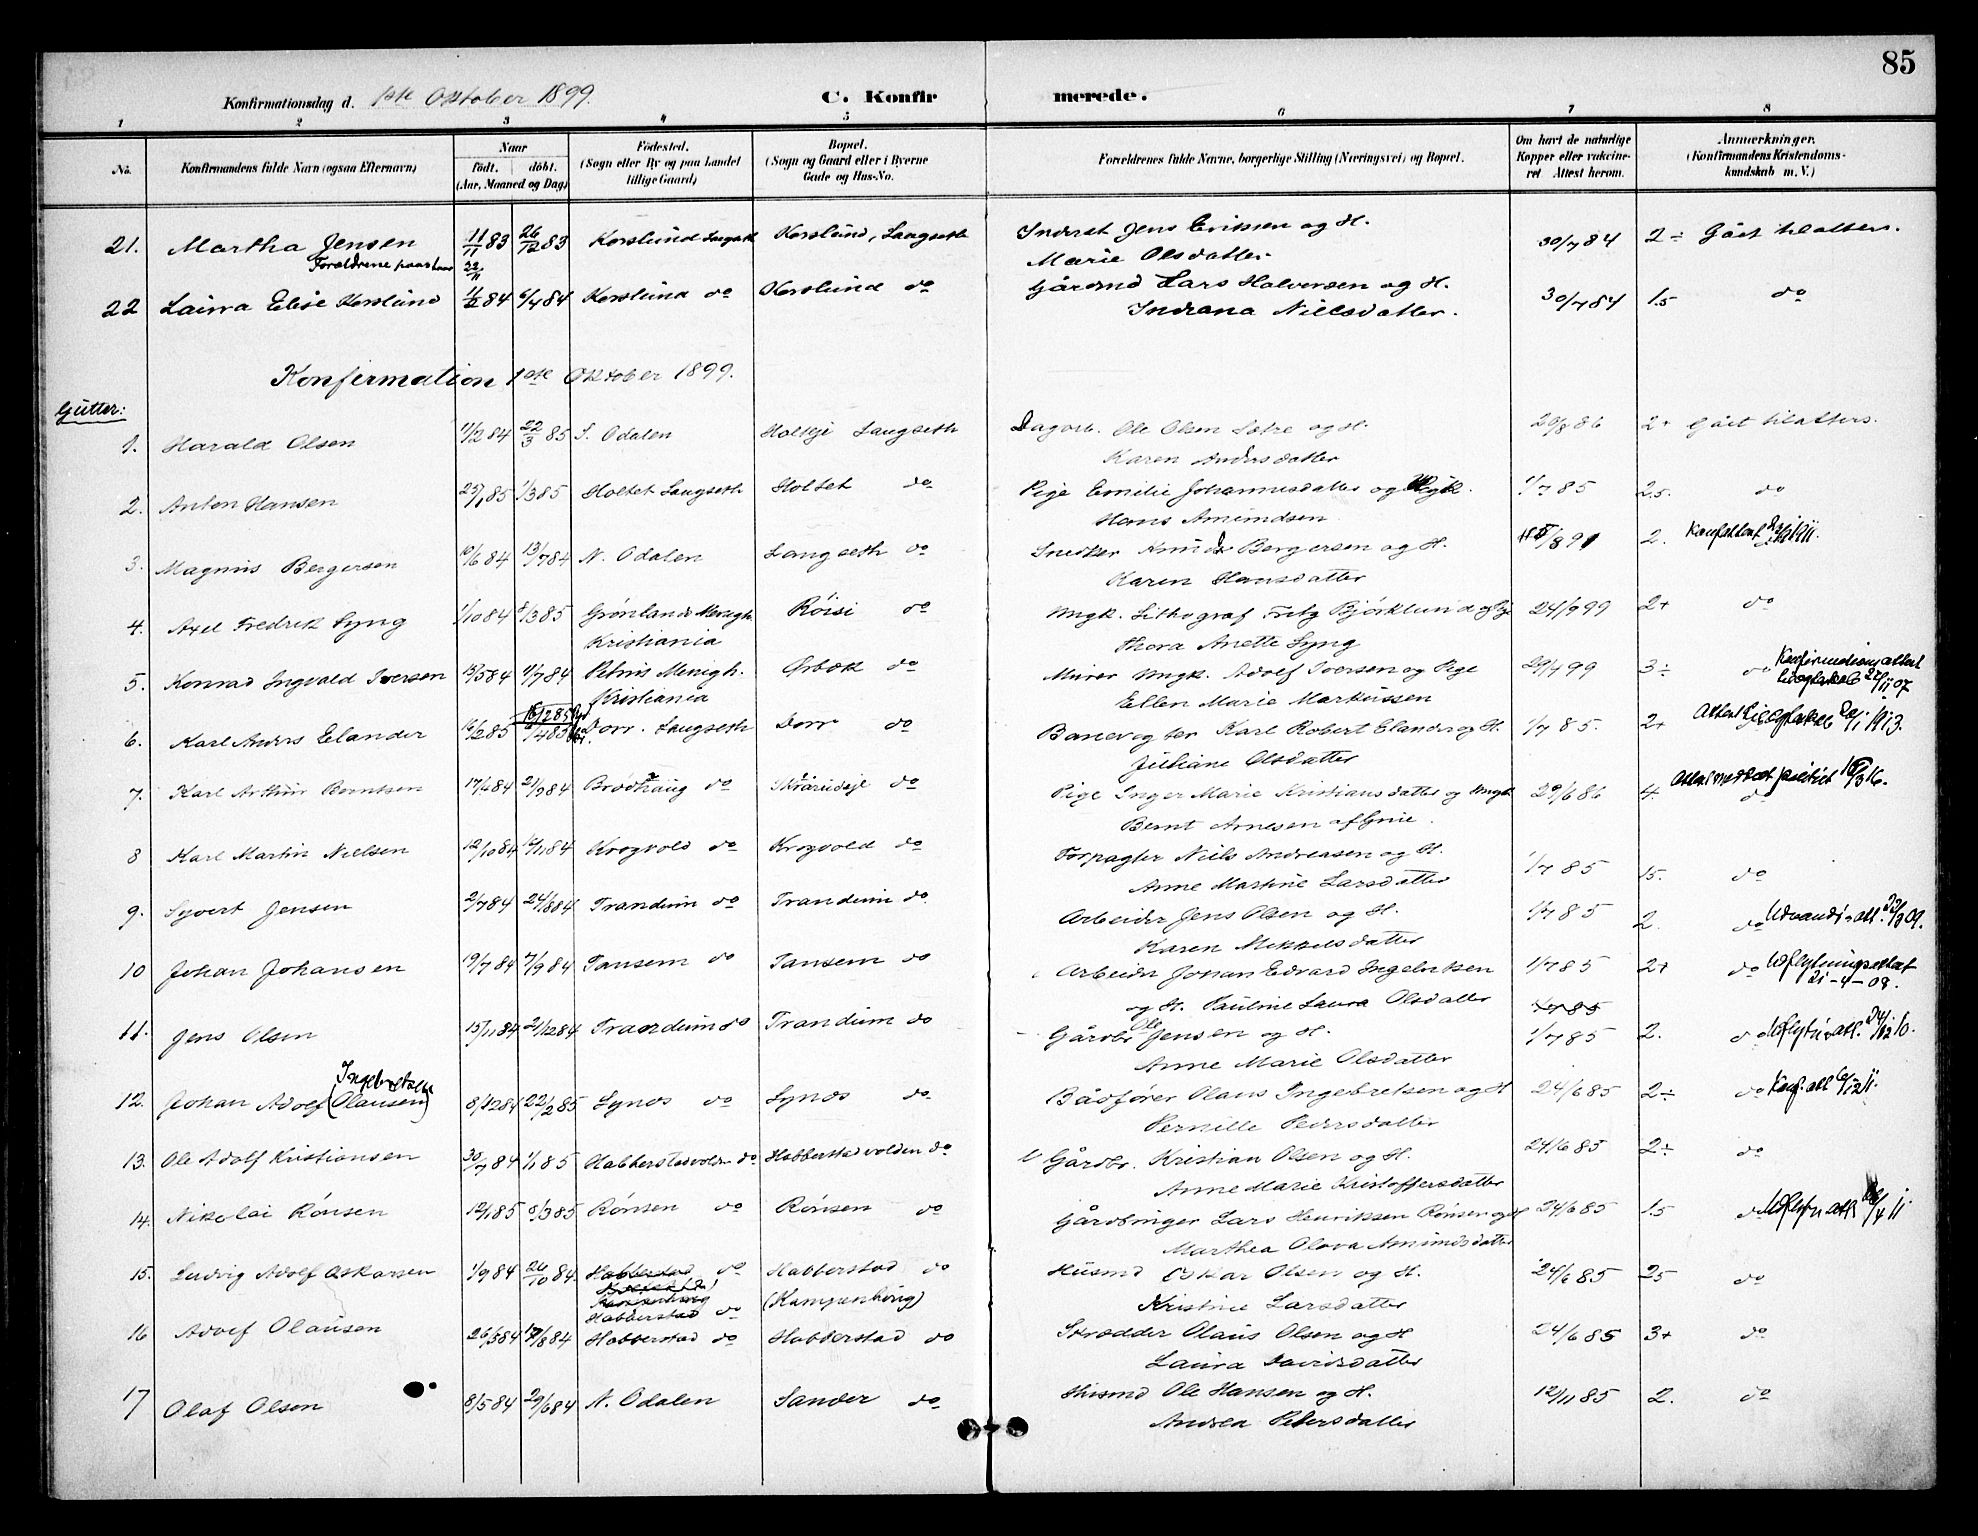 85
Konfirmationsdag d. 1ste Oktober 1899. C. Konfir merede.
1 2 3 4 5 6 7 8
No. Konfirmandens fulde Navn (ogsaa Efternavn) Naar født. døbt. (Aar, Maaned og Dag) Fødested. (Sogn eller By og paa Landet tillige Gaard) Bopæl. (Sogn og Gaard eller i Byerne Gade og Hus-No. Forældrenes fulde Navne, borgerlige Stilling (Næringsvei) og Bopæl. Om havt de naturlige Kopper eller vakcineret Attest herom. Anmærkninger. (Konfirmandens Kristendomskundskab m. V.)
21. Martha Jensen 11/11 83 26/12 83 Korslund Langseth Korslund, Langseth Indrst Jens Eriksen og H. 30/7 84 2÷ Gået tilalters.
Forældrene paastaar 22/11 Marie Olsdatter
22 Laura Elise Korslund 11/2 84 6/4 84 Korslund do Korslund do Gårdmd Lars Halvorsen og H. 30/7 84 1.5 do
Indiana Nielsdatter.
Konfirmation 1ste Oktober 1899.
Gutter:
1. Harald Olsen 11/12 84 22/3 85 S. Odalen Holteje Langseth Dagarb. Ole Olsen Sætre og H. 20/8 86 2+ Gået tilalters.
Karen Andersdatter
2. Anton Hansen 25/1 85 1/3 85 Holtet Langseth Holtet do Pige Emilie Johannesdatter og Ungk. 1/7 85 2.5. do
Hans Amundsen
3. Magnus Bergersen 10/6 84 13/7 84 N. Odalen Langseth do Snedker Amund Bergersen og H. 18/8 91 2. Konf.attest 1911.
Karen Hansdatter
4. Axel Fredrik Lyng 1/10 84 8/3 85 Grønlands Menigh. Røisi do Ungk. Lithograf Fritz Bjørklund og Pige 24/9 99 2+ do
Kristiania Thora Anette Lyng
5. Konrad Ingvald Iversen 15/5 84 11/7 84 Petrus Menigh. Ørbæk do Murer Ungk. Adolf Iversen og Pige 29/4 99 3÷ do Konfirmationsattest
Kristiania Ellen Marie Markussen 22/11 07
6. Karl Anders Elander 16/2 85 4 85 Dorr. Langseth Dorr do Banevogter Karl Robert Elander og H. 1/7 85. 2+ Attest 20/1 1913.
Juliane Olsdatter
7. Karl Arthur Berntsen 17/6 84 21/9 84 Brødhaug do Skrårudeje do Pige Inger Marie Kristiansdatter og Ungk 29/6 86 4. Attest meddelt 16/3 16.
Bernt Arnesen af Grue. do
8 Karl Martin Nielsen 12/10 84 16/11 84 Krogvold do Krogvold do Forpagter Niels Andreasen og H. 1/7 85 1.5. do
Anne Martine Larsdatter
9. Syvert Jensen 2/7 84 24/8 84 Trandum do Trandum do Arbeider Jens Olsen og H. 1/7 85 2. do Udvandr.att. 23/3 09.
Karen Mikkelsdatter
10 Johan Johansen 19/7 84 7/9 84 Tansem do Tansem do Arbeider Johan Edvard Ingebretsen 1/7 85 2+ do Udflytningsattest
og H. Pauline Laura Olsdatter 1/7 85 21-4-08.
11. Jens Olsen 15/11 84 21/12 84 Trandum do Trandum do Gårdbr. Ole Jensen og H. 1/7 85 2. do Udflytn.att. 24/12 10.
Anne Marie Olsdatter
12. Johan Adolf (Olausen) Ingebretsen 8/12 84 22/2 85 Lynæs do Lynæs do Båsfører Olaus Ingebretsen og H 24/6 85 2÷ do Konf.att 6/12 11.
Pernille Pedersdatter
13. Ole Adolf Kristiansen 30/7 84 1/1 85 Habberstadvolden do Habberstadvolden do Gårdbr. Kristian Olsen og H. 24/6 85 2÷ do
Anne Marie Kristoffersdatter
14. Nikolai Rønsen 12/1 85 8/3 85 Rønsen do Rønsen do Gårdbruger Lars Henriksen Rønsen og H 24/6 85 1.5 do Udflytn.att 4 11
Marthea Olava Amundsdatter
15. Ludvig Adolf Oskarsen 1/9 84 26/10 84. Habberstad do Habberstad do Husmd Oskar Olsen og H. 24/6 85 2.5 do
Habberstad do (Kampenhaug) Kristine Larsdatter
16 Adolf Olausen 26/5 84 17/8 84 Habberstad do Habberstad do Skrædder Olaus Olsen og H 24/6 85 3+ do
Laura Davidsdatter
17 Olaf Olsen 8/5 84 29/6 84 N. Odalen Sander do Husmd Ole Hansen og H. 12/11 85 2. do
Andrea Pedersdatter